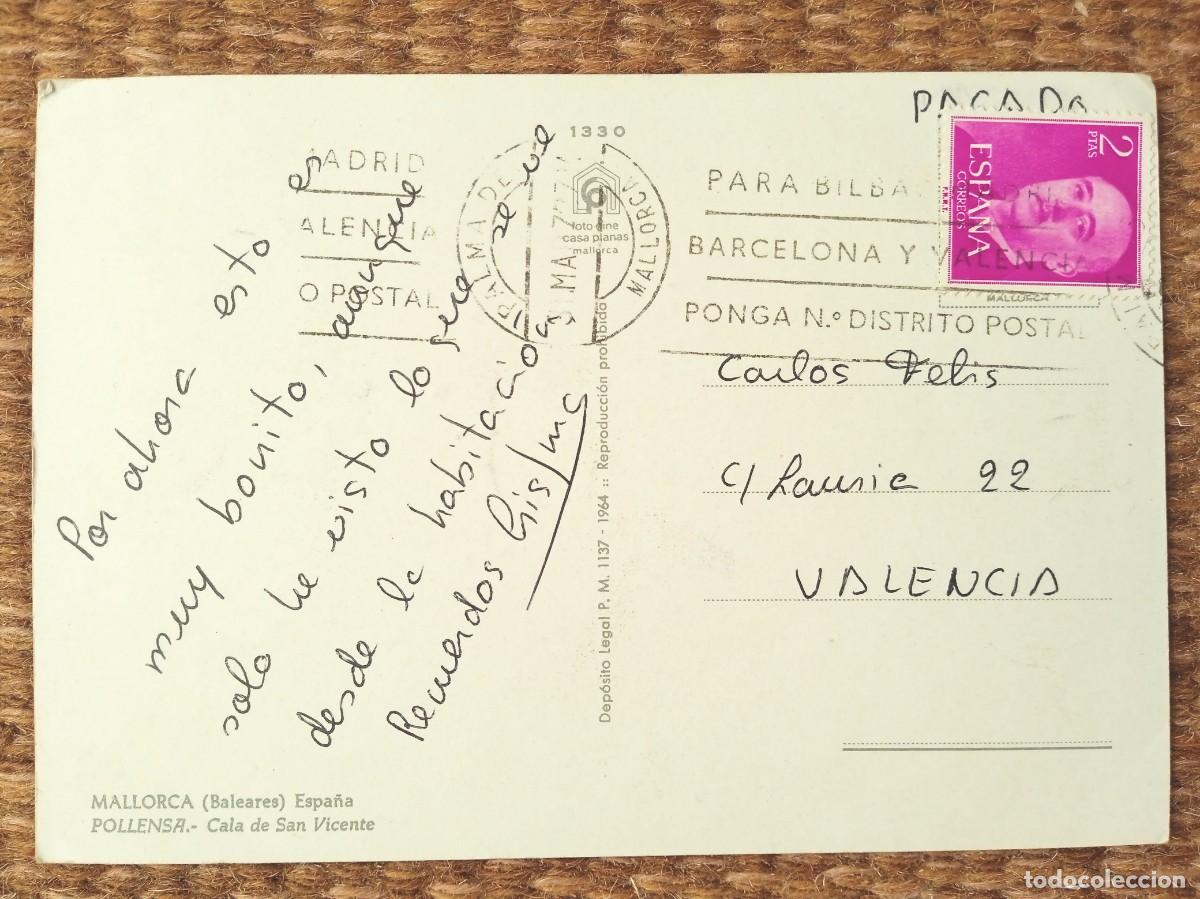 Por ahora esto es
muy bonito, aunque
solo he visto lo que se ve
desde la habitación
Recuerdos
MALLORCA (Baleares) España
POLLENSA.- Cala de San Vicente
1330
foto cine
casa planas
mallorca
Depósito Legal P. M. 1137 - 1964 :: Reproducción prohibida
PALMA DE MALLORCA
MADRID
VALENCIA
O POSTAL
PARA BILBAO MADRID
BARCELONA Y VALENCIA
PONGA N.º DISTRITO POSTAL
PAGADA
2 PTAS
ESPAÑA
CORREOS
F.N.M.T.
MALLORCA
Carlos Felis
C/ Lauria 22
VALENCIA
todocoleccion